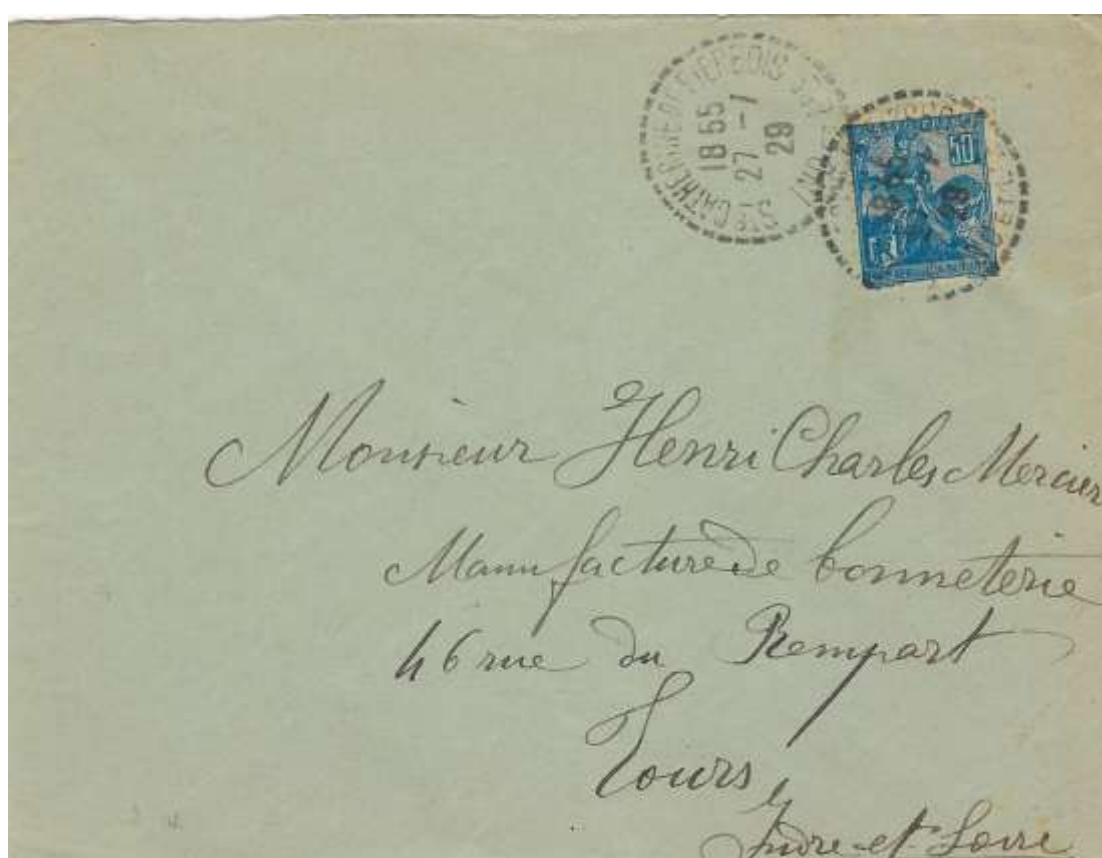 Ste CATHERINE DE FIERBOIS
18 55
27 - 1
29
50
Monsieur Henri Charles Mercier
Manufacture de bonneterie
46 rue du Rempart
Tours
Indre-et-Loire